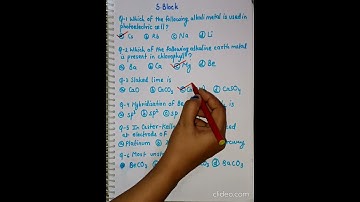 S Block
Q-1 Which of the following alkali metal is used in
photoelectric cell?
a Cs b Rb c Na d Li
Q-2 Which of the following alkaline earth metal
is present in chlorophyll?
a Ba b Ca c Mg d Be
Q-3 Slaked lime is
a CaO b CaCO3 d CaSO4
Q-4 Hybridisation of Be is
a sp3 b sp2 c sp
Q-5 In Castner-Kellner used
at electrode of
a Platinum b
Q-6 Most
BeCO3 b d BaCO3
clideo.com